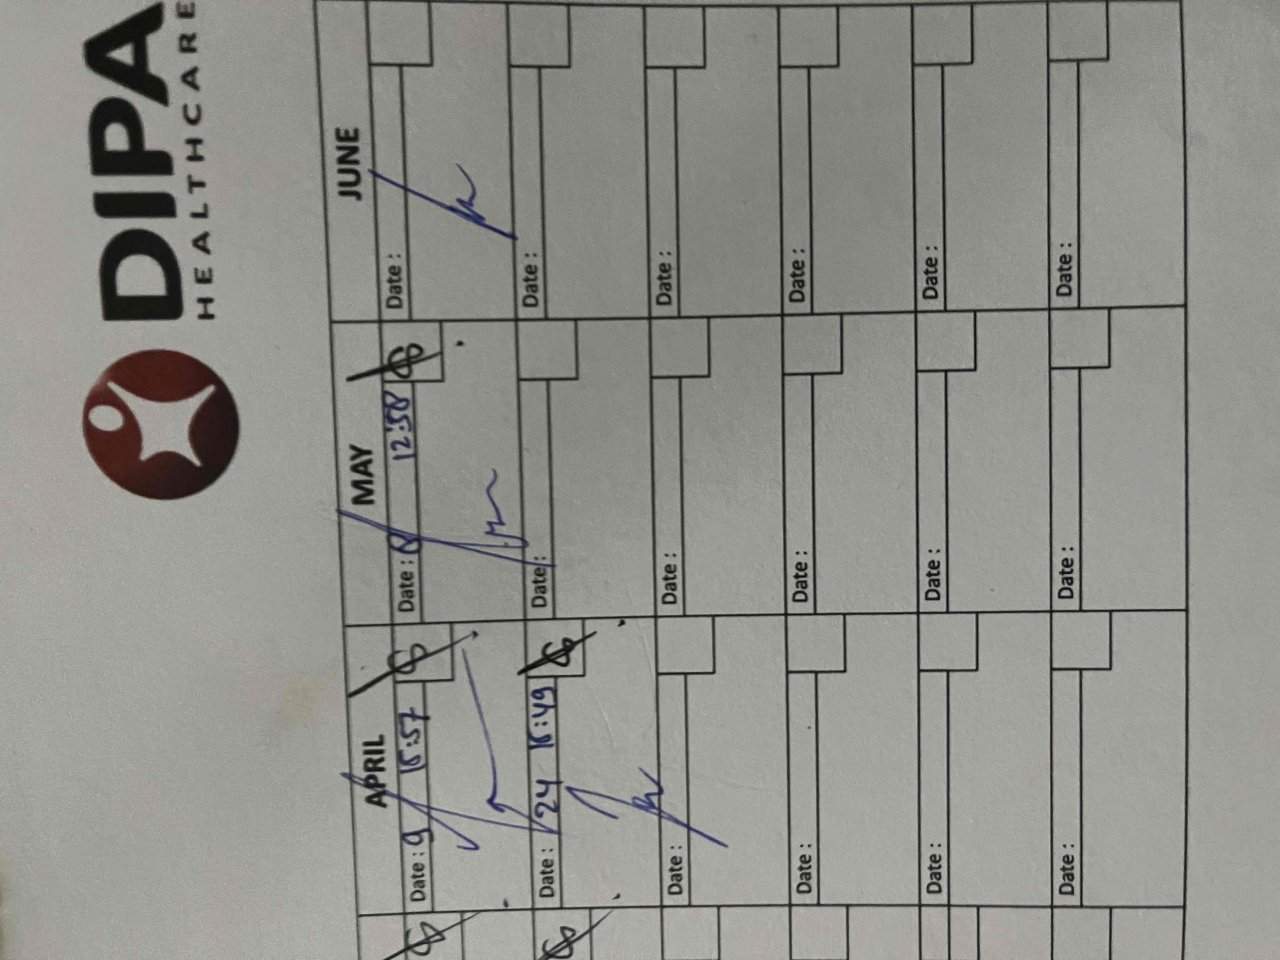 DIPA
HEALTHCARE
APRIL MAY JUNE
Date : 9 15:57 Date : 8 12:58 Date :
Date : 24 Date : Date :
Date : Date : Date :
Date : Date : Date :
Date : Date : Date :
Date : Date : Date :